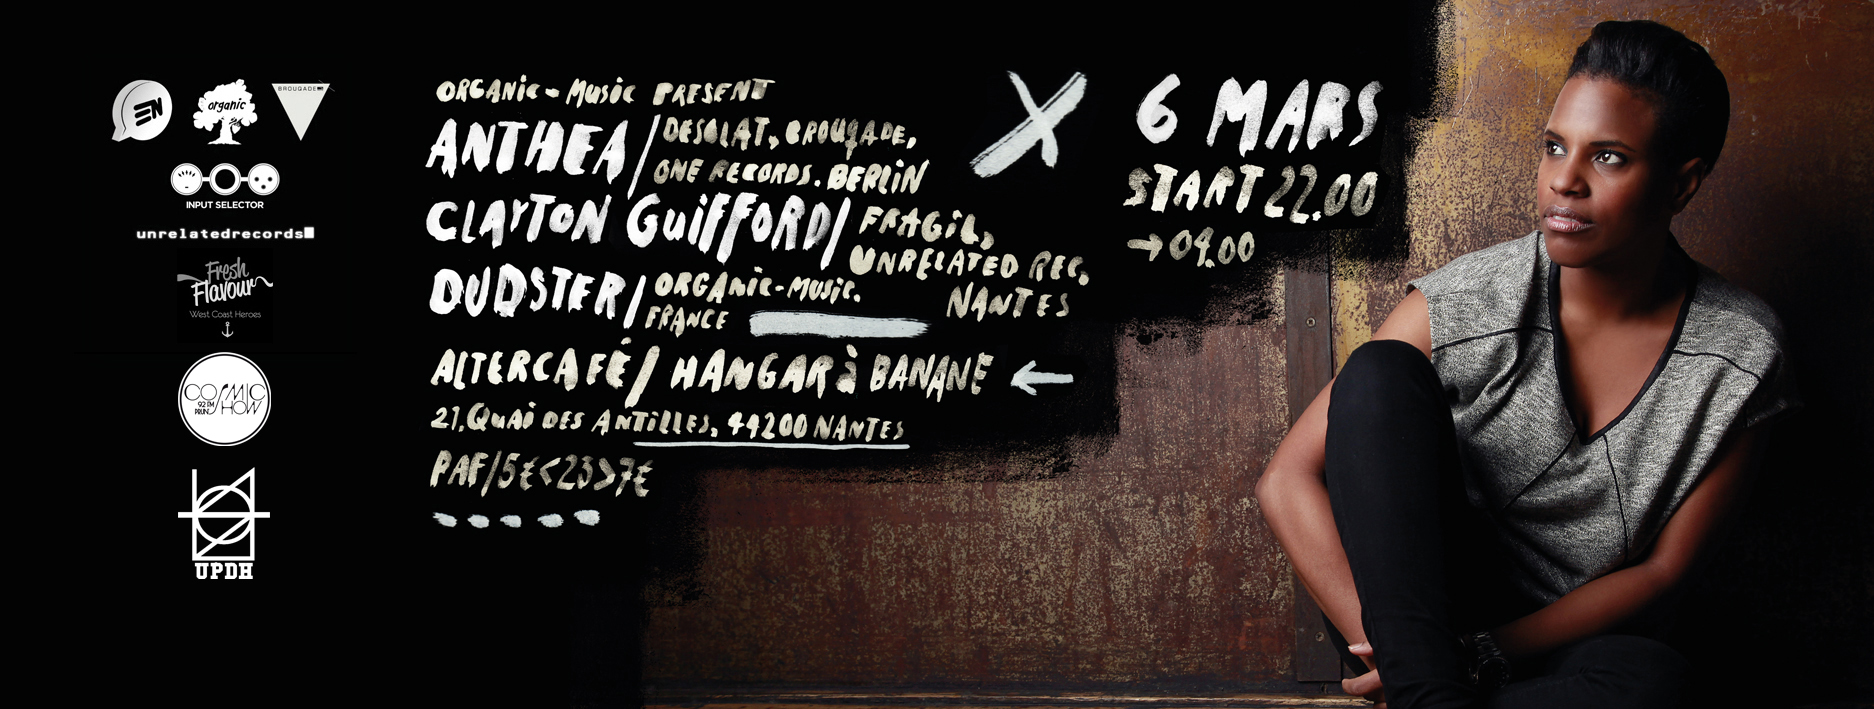 EN
organic
BROUQADE
INPUT SELECTOR
unrelatedrecords
Fresh
Flavour
West Coast Heroes
COSMIC
92 FM
PRUN
SHOW
UPDH
ORGANiC - MUSiC PRESENT
ANTHEA / DESOLAT, BROUQADE,
ONE RECORDS. BERLiN
CLAYTON GUiFFORD / FRAGiL,
UNRELATED REC,
NANTES
DUDSTER / ORGANiC-MUSiC.
FRANCE
ALTERCAFÉ / HANGAR à BANANE
21, QUAi DES ANTiLLES, 44200 NANTES
PAF/5€<23>7€
X
6 MARS
START 22.00
→ 04.00